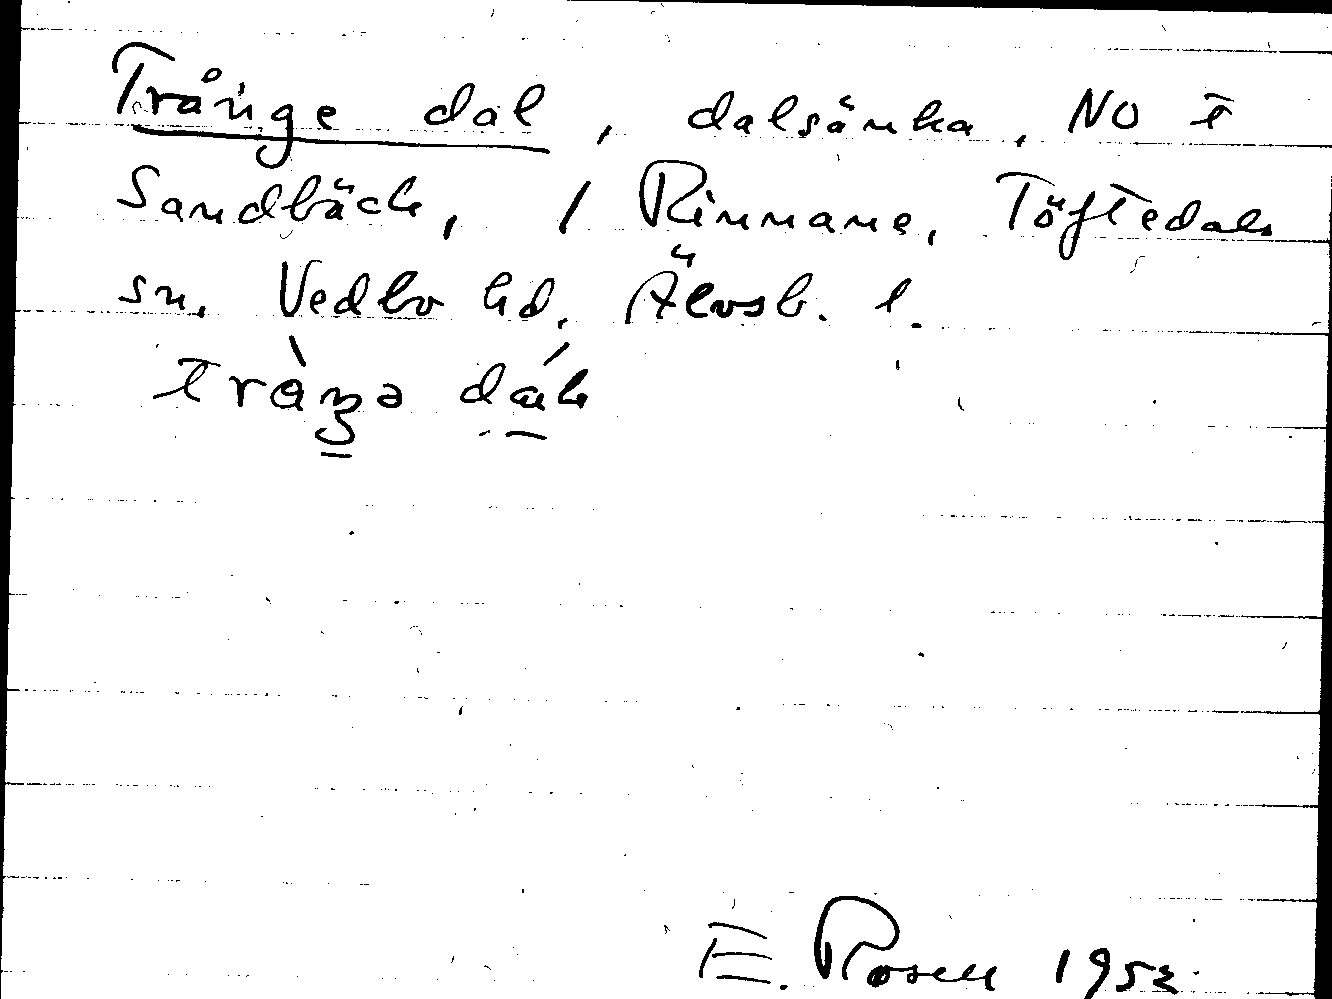 Trånge dal, dalsänka, NO t
Sandbäck, 1 Rinnane, Töftedals
sn. Vedbo hd, Älvsb. l.
E. Rosell 1952.